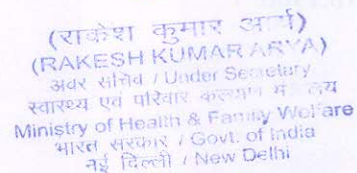 (राकेश कुमार आर्य)
(RAKESH KUMAR ARYA)
अवर सचिव / Under Secretary
स्वास्थ्य एवं परिवार कल्याण मंत्रालय
Ministry of Health & Family Welfare
भारत सरकार / Govt. of India
नई दिल्ली / New Delhi